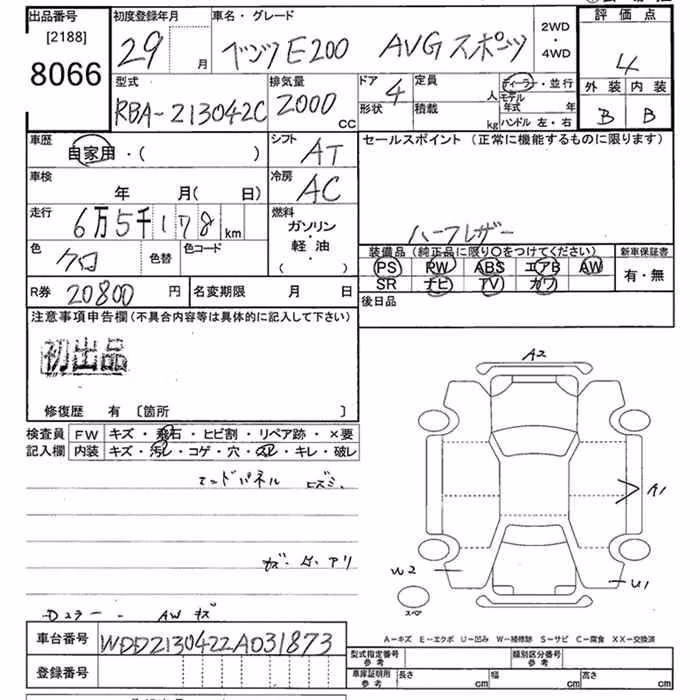 出品番号 [2188] 8066
初度登録年月 29 月
車名・グレード ベンツE200 AVGスポーツ
2WD・4WD
評価点 4
外装 内装
B B
型式 RBA-213042C
排気量 2000 cc
ドア 4 形状
定員 人 積載 kg
ディーラー・並行
モデル年式 年
ハンドル 左・右
車歴 自家用・( )
シフト AT
車検 年 月( 日)
冷房 AC
走行 6万5千178 km
燃料 ガソリン・軽油・( )
色 クロ 色替 色コード
R券 20800 円 名変期限 月 日
セールスポイント (正常に機能するものに限ります)
ハーフレザー
装備品 (純正品に限り○をつけてください) 新車保証書
PS RW ABS エアB AW 有・無
SR ナビ TV カワ
後日品
注意事項申告欄(不具合内容等は具体的に記入して下さい)
初出品
修復歴 有 〔箇所 〕
検査員 FW キズ・飛石・ヒビ割・リペア跡・×要
記入欄 内装 キズ・汚レ・コゲ・穴・スレ・キレ・破レ
A2
A1
W2
U1
スペア
AWキズ
A-キズ E-エクボ U-凹み W-補修跡 S-サビ C-腐食 XX-交換済
車台番号 WDD2130422A031873
登録番号
型式指定番号 参考 類別区分番号 参考
車庫証明用 参考 長さ cm 幅 cm 高さ cm